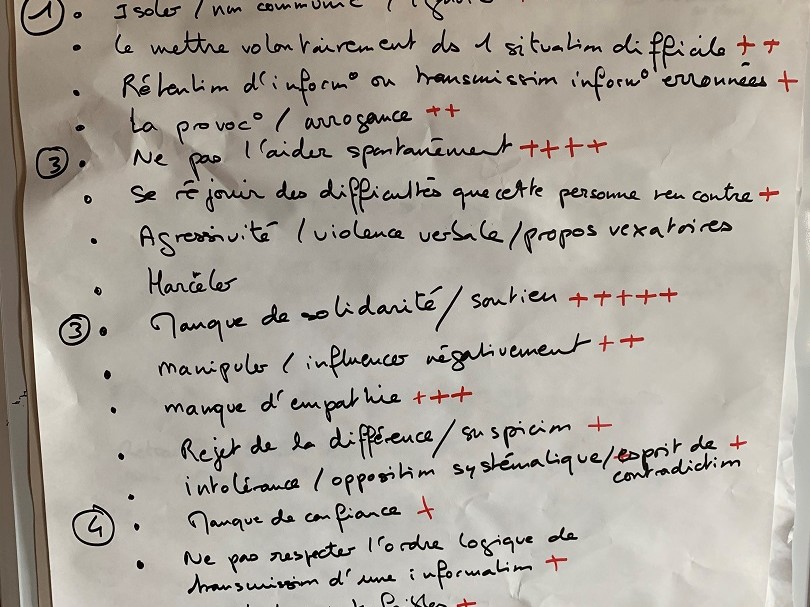 ① • Isoler / non communic° /
• Le mettre volontairement ds 1 situation difficile ++
• Rétention d'inform° ou transmission inform° erronnées +
• La provoc° / arrogance ++
③ • Ne pas l'aider spontanément ++++
• Se réjouir des difficultés que cette personne rencontre +
• Agressivité / violence verbale / propos vexatoires
• Harcèler
③ • Manque de solidarité / soutien +++++
• manipuler / influencer négativement ++
• manque d'empathie +++
• Rejet de la différence / suspicion +
• intolérance / opposition systématique / esprit de +
contradiction
④ • Manque de confiance +
• Ne pas respecter l'ordre logique de
transmission d'une information +